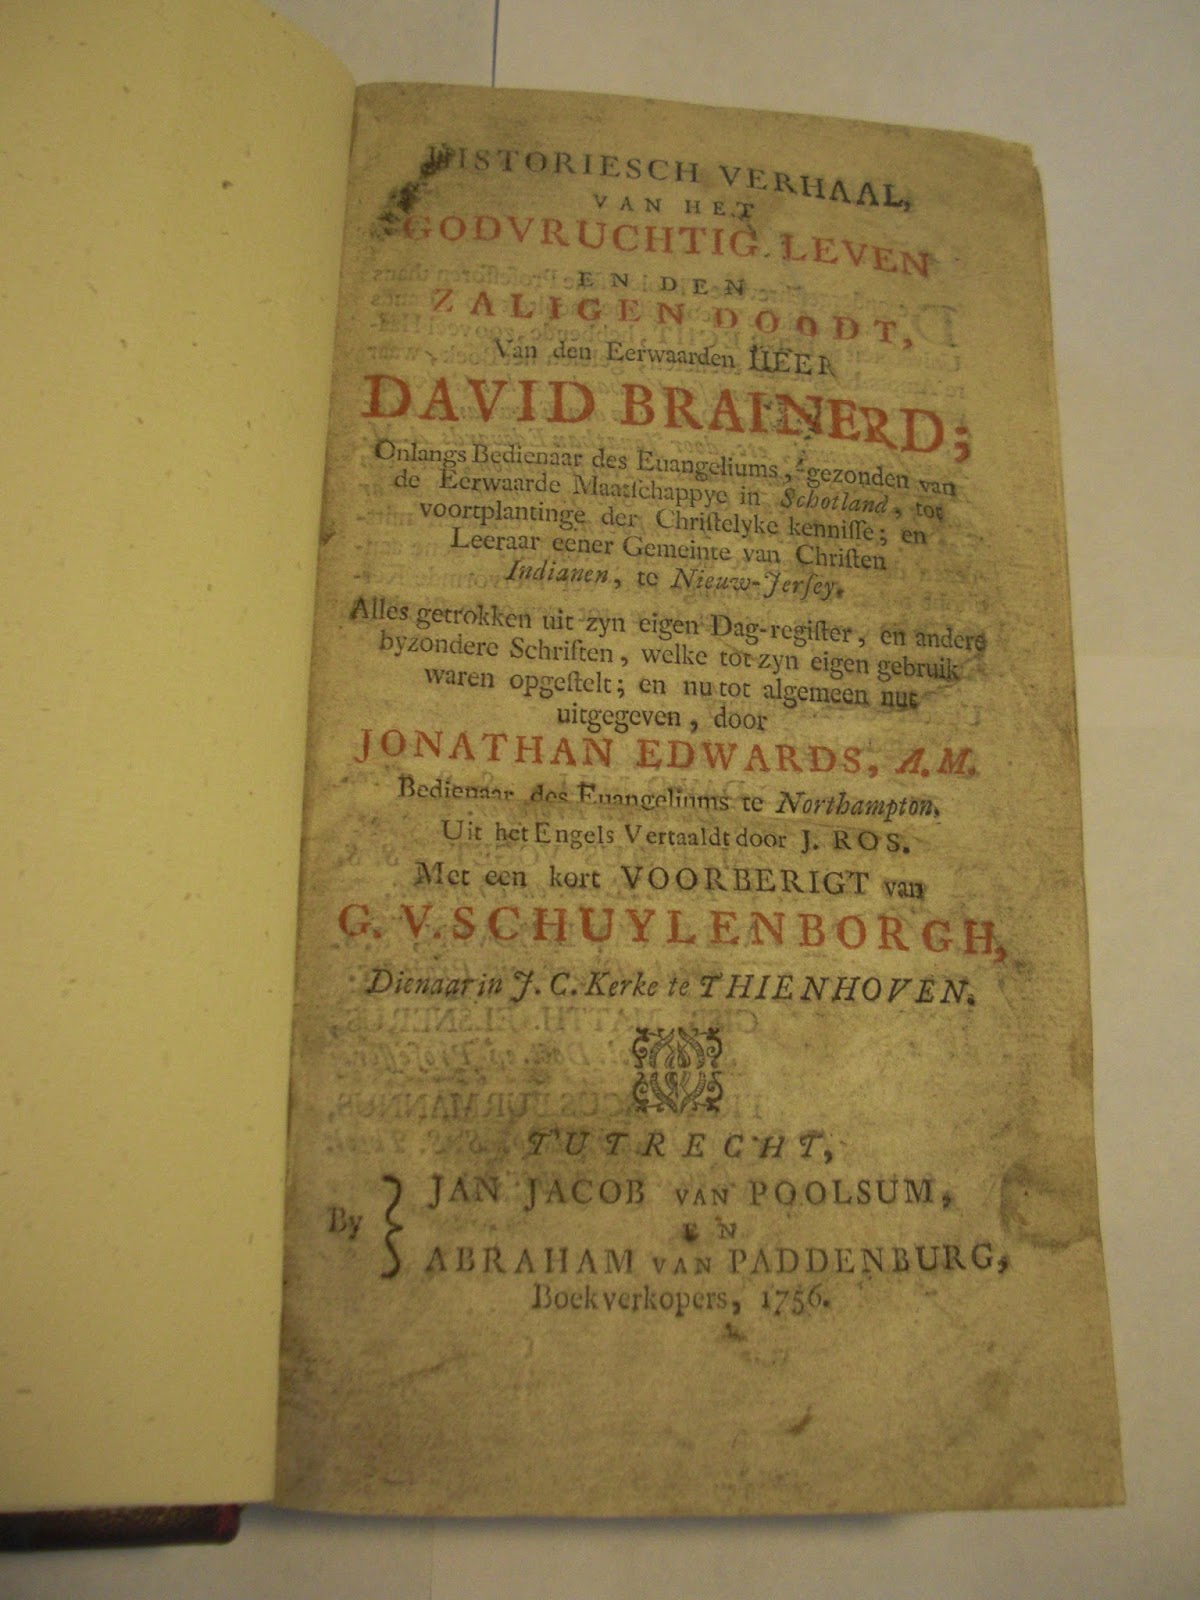 HISTORIESCH VERHAAL,
VAN HET
GODVRUCHTIG LEVEN
EN DEN
ZALIGEN DOODT,
Van den Eerwaarden HEER
DAVID BRAINERD;
Onlangs Bedienaar des Euangeliums, gezonden van
de Eerwaarde Maatſchappye in Schotland, tot
voortplantinge der Chriſtelyke kenniſſe; en
Leeraar eener Gemeinte van Chriſten
Indianen, te Nieuw-Jerſey.
Alles getrokken uit zyn eigen Dag-regiſter, en andere
byzondere Schriften, welke tot zyn eigen gebruik
waren opgeſtelt; en nu tot algemeen nut
uitgegeven, door
JONATHAN EDWARDS, A.M.
Bedienaar des Euangeliums te Northampton.
Uit het Engels Vertaaldt door J. ROS.
Met een kort VOORBERIGT van
G. V. SCHUYLENBORGH,
Dienaar in J. C. Kerke te THIENHOVEN.
TUTRECHT,
By } JAN JACOB VAN POOLSUM,
EN
ABRAHAM VAN PADDENBURG,
Boekverkopers, 1756.